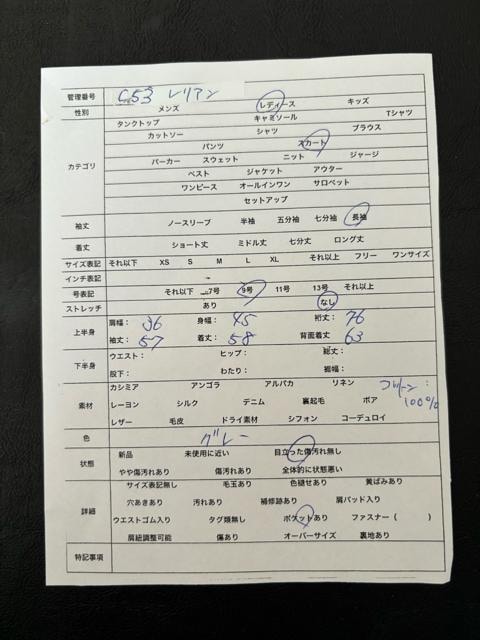 管理番号 C53 レリアン
性別 メンズ レディース キッズ
カテゴリ タンクトップ キャミソール Tシャツ
カットソー シャツ ブラウス
パンツ スカート
パーカー スウェット ニット ジャージ
ベスト ジャケット アウター
ワンピース オールインワン サロペット
セットアップ
袖丈 ノースリーブ 半袖 五分袖 七分袖 長袖
着丈 ショート丈 ミドル丈 七分丈 ロング丈
サイズ表記 それ以下 XS S M L XL それ以上 フリー ワンサイズ
インチ表記
号表記 それ以下 7号 9号 11号 13号 それ以上
ストレッチ あり なし
上半身 肩幅：36 身幅：45 裄丈：76
袖丈：57 着丈：58 背面着丈 63
下半身 ウエスト： ヒップ： 総丈：
股下： わたり： 裾幅：
素材 カシミア アンゴラ アルパカ リネン
レーヨン シルク デニム 裏起毛 ボア 100%
レザー 毛皮 ドライ素材 シフォン コーデュロイ
色 グレー
状態 新品 未使用に近い 目立った傷汚れ無し
やや傷汚れあり 傷汚れあり 全体的に状態悪い
詳細 サイズ表記無し 毛玉あり 色褪せあり 黄ばみあり
穴あきあり 汚れあり 補修跡あり 肩パッド入り
ウエストゴム入り タグ類無し ポケットあり ファスナー（ ）
肩紐調整可能 傷あり オーバーサイズ 裏地あり
特記事項